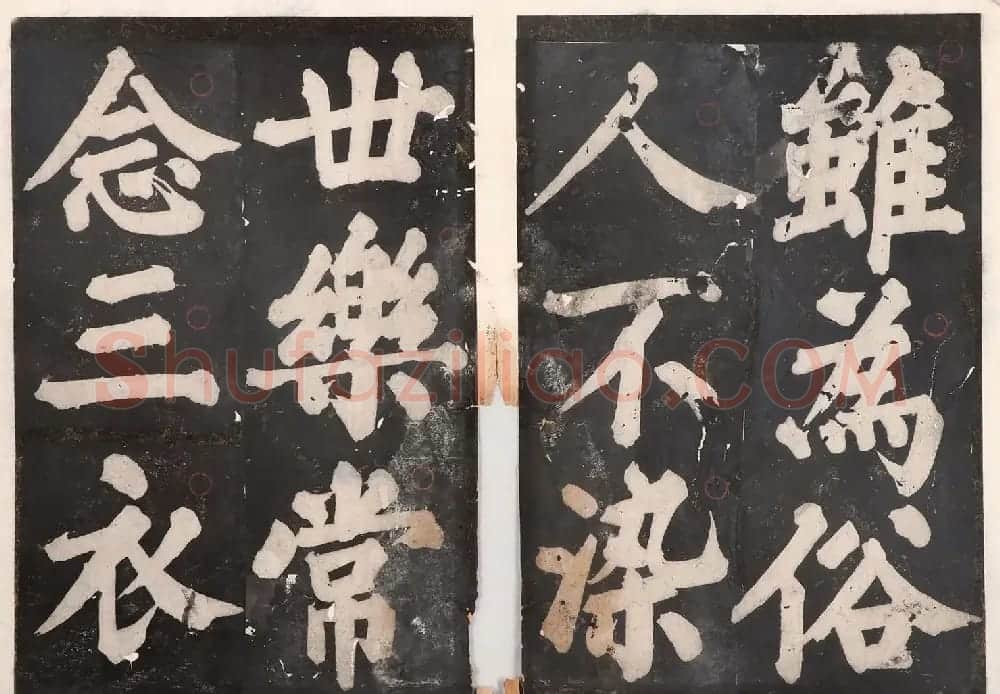 雖為俗
人不染
丗樂常
念三衣
Shufaziliao.COM